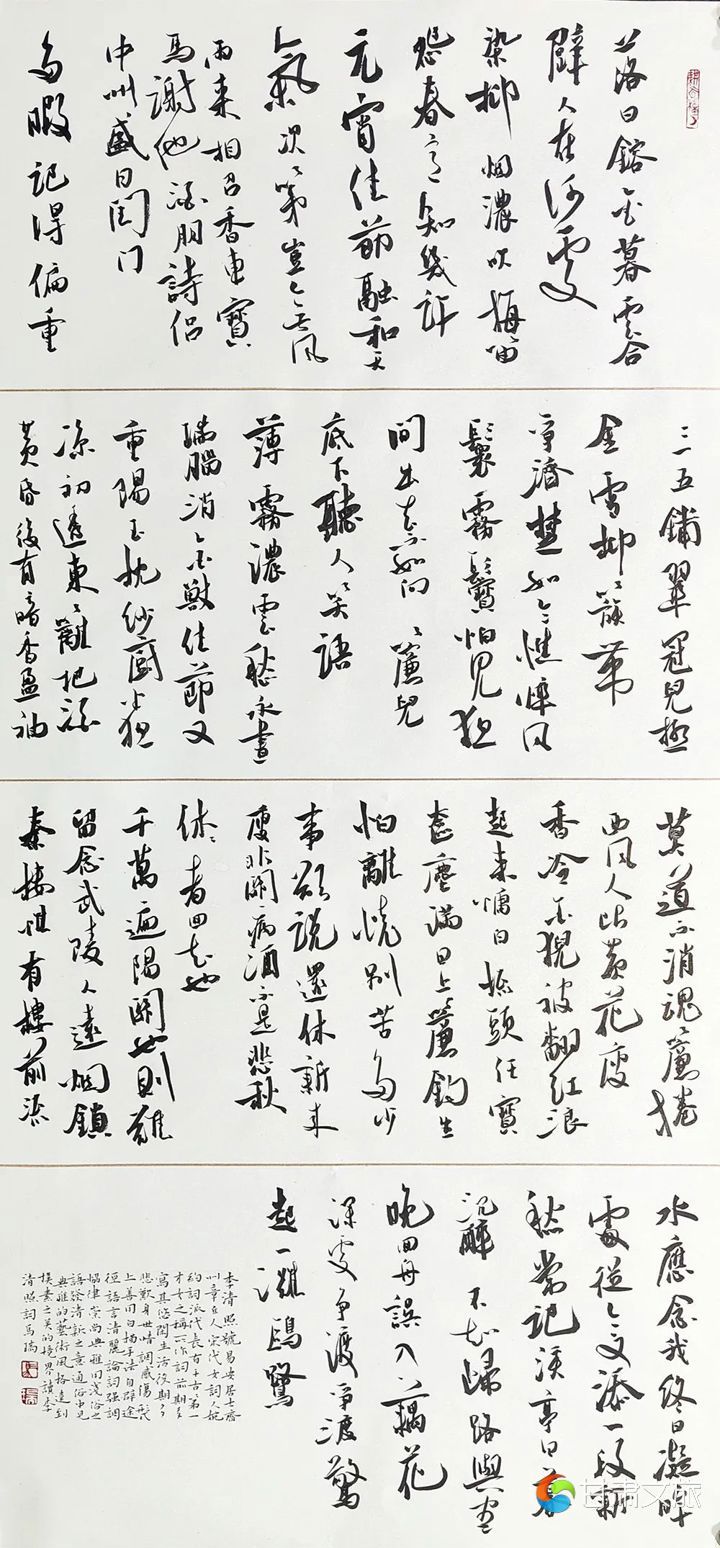 落日鎔金暮雲合
璧人在何處
染柳烟濃吹梅笛
怨春意知幾許
元宵佳節融和天
氣次第豈無风
雨来相召香車寶
馬謝他酒朋詩侣
中州盛日閨门
多暇記得偏重
三五鋪翠冠兒撚
金雪柳簇帶
爭濟楚如今憔悴风
鬟霧鬢怕见夜
間出去不如向簾兒
底下聽人笑語
薄霧濃雲愁永晝
瑞腦消金獸佳節又
重陽玉枕紗厨半夜
凉初透東籬把酒
黄昏後有暗香盈袖
莫道不消魂簾捲
西风人比黄花瘦
香冷金猊被翻红浪
起来慵自梳頭任寶
奩塵滿日上簾鈎生
怕離懷别苦多少
事欲說還休新来
瘦非關病酒不是悲秋
休休者回去也
千萬遍陽關也則難
留念武陵人遠烟鎖
秦樓惟有樓前流
水應念我終日凝眸
處從今又添一段新
愁常記溪亭日暮
沉醉不知歸路興盡
晚回舟誤入藕花
深處爭渡爭渡驚
起一灘鷗鷺
李清照號易安居士齊
州章丘人宋代女詞人婉
约詞派代表有千古第一
才女之稱所作詞前期多
寫其悠閑生活後期多
悲歎身世情調感傷形式
上善用白描手法自辟途
徑語言清麗論詞强調
協律崇尚典雅用淺俗之
語發清新之意通俗中见
典雅的藝術风格達到
樸素之美的境界讀李
清照詞馬瑞
甘肃文旅